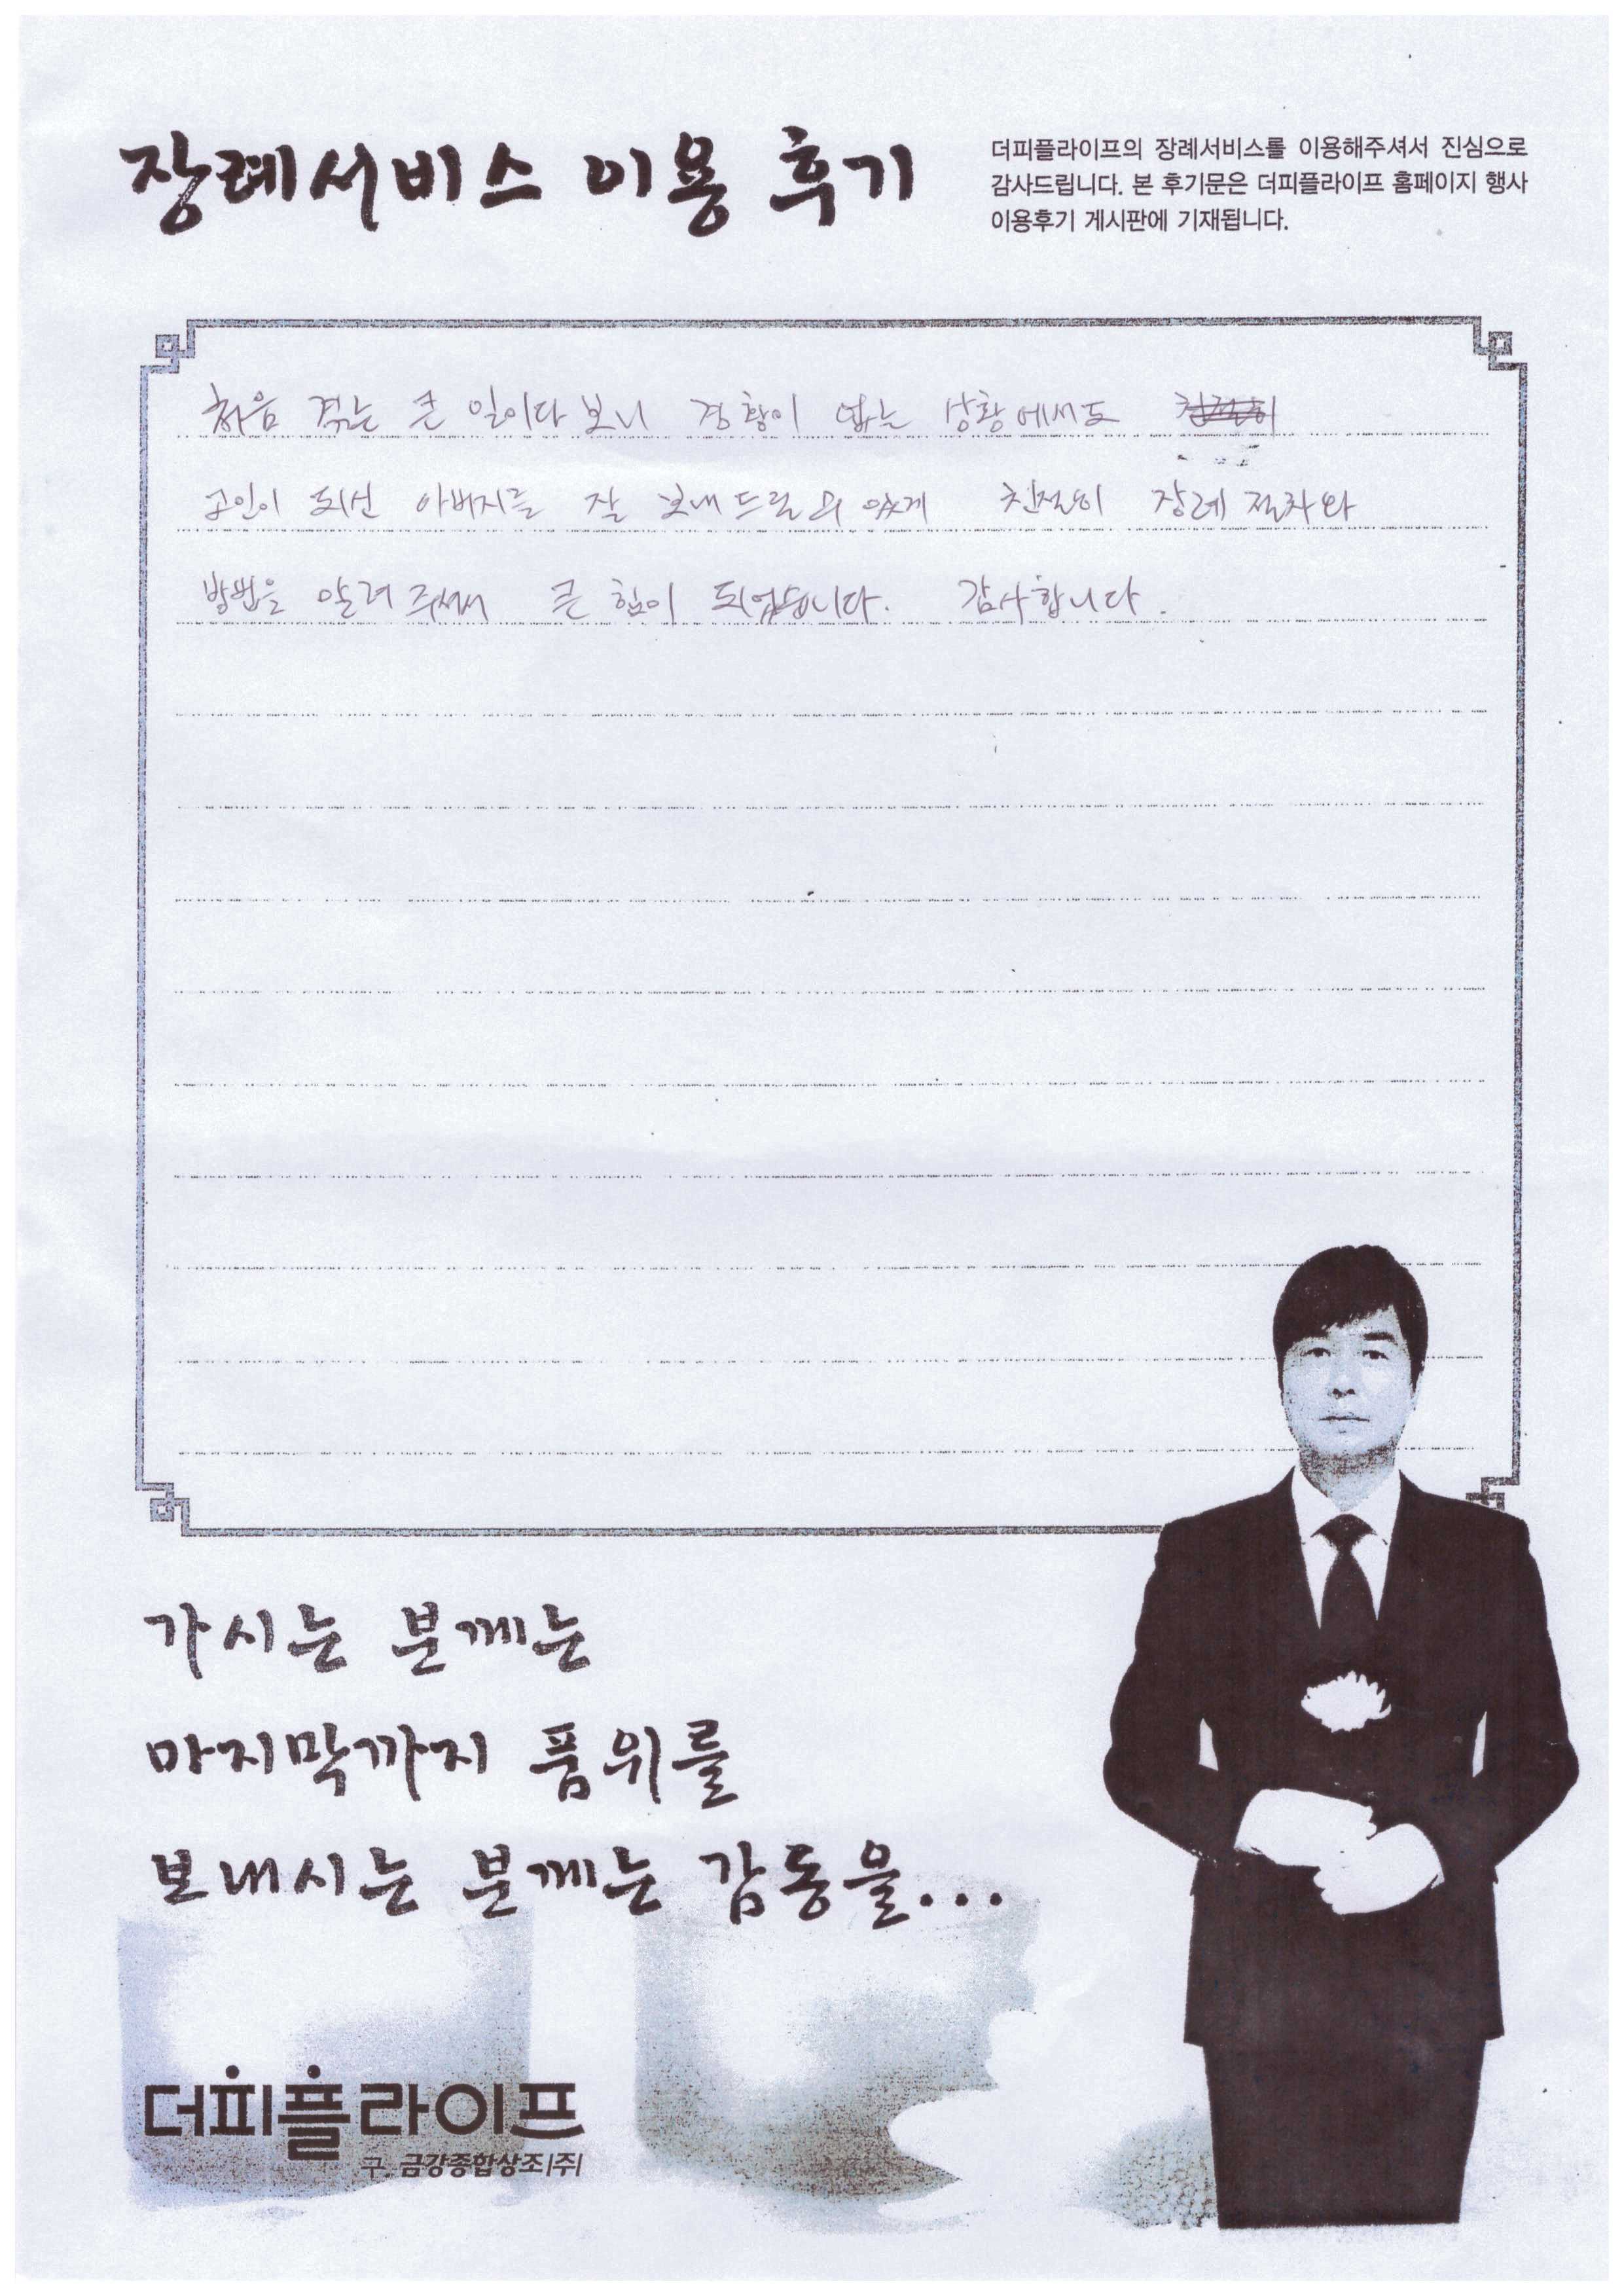 장례서비스 이용 후기
더피플라이프의 장례서비스를 이용해주셔서 진심으로
감사드립니다. 본 후기문은 더피플라이프 홈페이지 행사
이용후기 게시판에 기재됩니다.
처음 겪는 큰 일이다 보니 경황이 없는 상황에서도
고인이 되신 아버지를 잘 보내드릴 수 있게 친절히 장례 절차와
방법을 알려 주셔서 큰 힘이 되었습니다. 감사합니다.
가시는 분께는
마지막까지 품위를
보내시는 분께는 감동을...
더피플라이프
구. 금강종합상조|주|